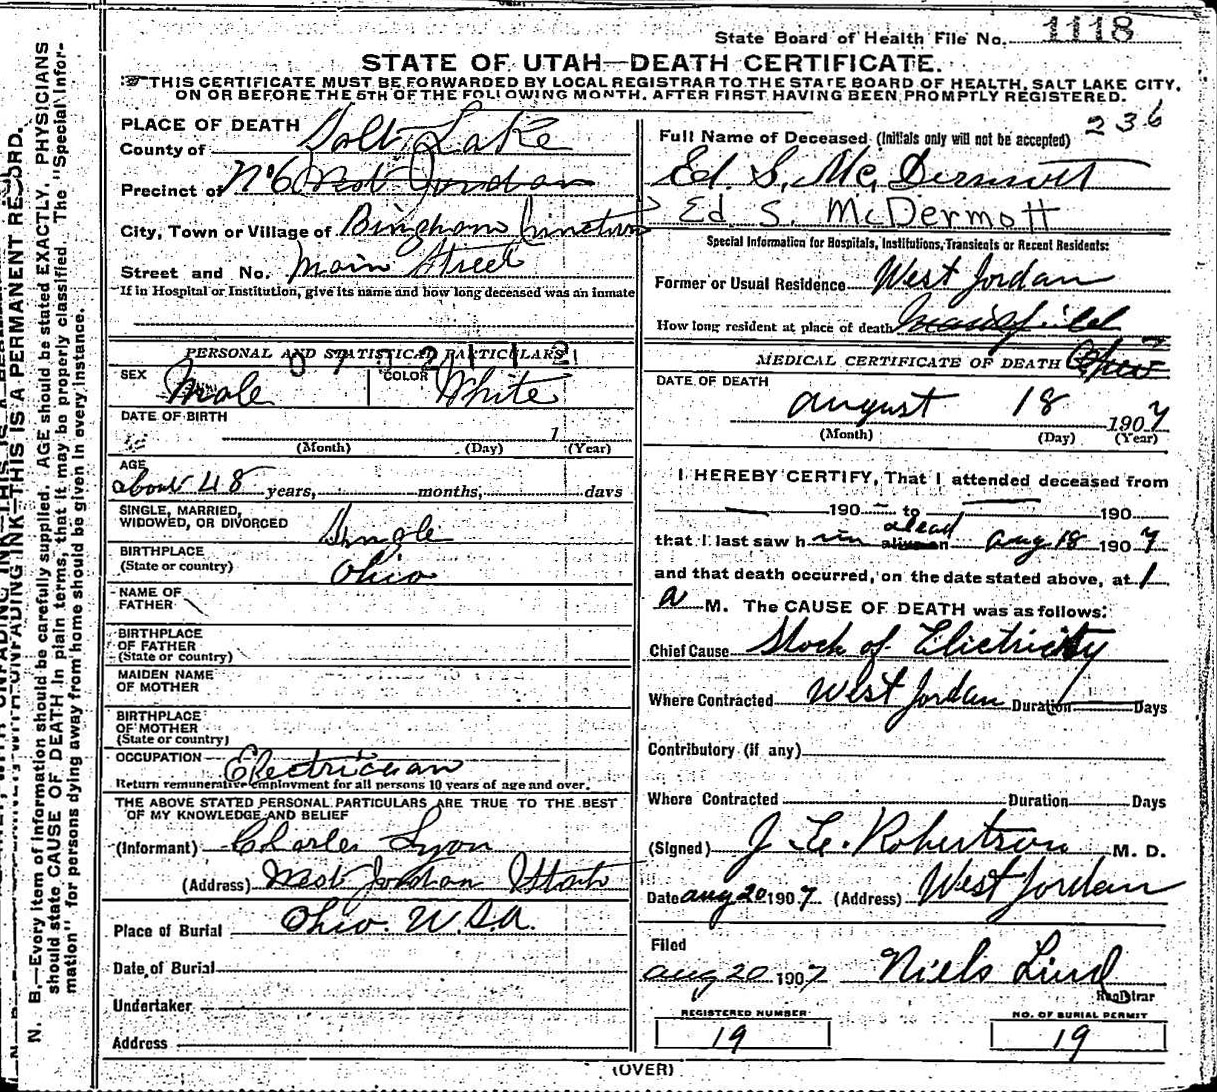 State Board of Health File No. 1118
STATE OF UTAH—DEATH CERTIFICATE.
THIS CERTIFICATE MUST BE FORWARDED BY LOCAL REGISTRAR TO THE STATE BOARD OF HEALTH, SALT LAKE CITY,
ON OR BEFORE THE 5TH OF THE FOLLOWING MONTH, AFTER FIRST HAVING BEEN PROMPTLY REGISTERED.
N. B.—Every item of information should be carefully supplied. AGE should be stated EXACTLY. PHYSICIANS
should state CAUSE OF DEATH in plain terms, that it may be properly classified. The "Special Infor-
mation" for persons dying away from home should be given in every instance.
PLACE OF DEATH
County of Salt Lake
Precinct of No 6 West Jordan
City, Town or Village of Bingham Junction
Street and No. Main Street
If in Hospital or Institution, give its name and how long deceased was an inmate
PERSONAL AND STATISTICAL PARTICULARS
SEX Male COLOR White
DATE OF BIRTH
1
(Month) (Day) (Year)
AGE
about 48 years, months, days
SINGLE, MARRIED,
WIDOWED, OR DIVORCED Single
BIRTHPLACE
(State or country) Ohio
NAME OF
FATHER
BIRTHPLACE
OF FATHER
(State or country)
MAIDEN NAME
OF MOTHER
BIRTHPLACE
OF MOTHER
(State or country)
OCCUPATION Electrician
Return remunerative employment for all persons 10 years of age and over.
THE ABOVE STATED PERSONAL PARTICULARS ARE TRUE TO THE BEST
OF MY KNOWLEDGE AND BELIEF
(Informant) Charles Lyon
(Address) West Jordan Utah
Place of Burial Ohio. U.S.A.
Date of Burial
Undertaker
Address
236
Full Name of Deceased (Initials only will not be accepted)
Ed. S. Mc Dermott
Ed S. McDermott
Special Information for Hospitals, Institutions, Transients or Recent Residents:
Former or Usual Residence West Jordan
How long resident at place of death
MEDICAL CERTIFICATE OF DEATH
DATE OF DEATH
August 18 1907
(Month) (Day) (Year)
I HEREBY CERTIFY, That I attended deceased from
190 to 190
that I last saw him alive on dead Aug 18 1907
and that death occurred, on the date stated above, at 1
a M. The CAUSE OF DEATH was as follows:
Chief Cause Shock of Electricity
Where Contracted West Jordan Duration Days
Contributory (if any)
Where Contracted Duration Days
(Signed) Robertson M. D.
Date Aug 20 1907 (Address) West Jordan
Filed
Aug 20 1907 Niels Lind
Registrar
REGISTERED NUMBER
19
NO. OF BURIAL PERMIT
19
(OVER)